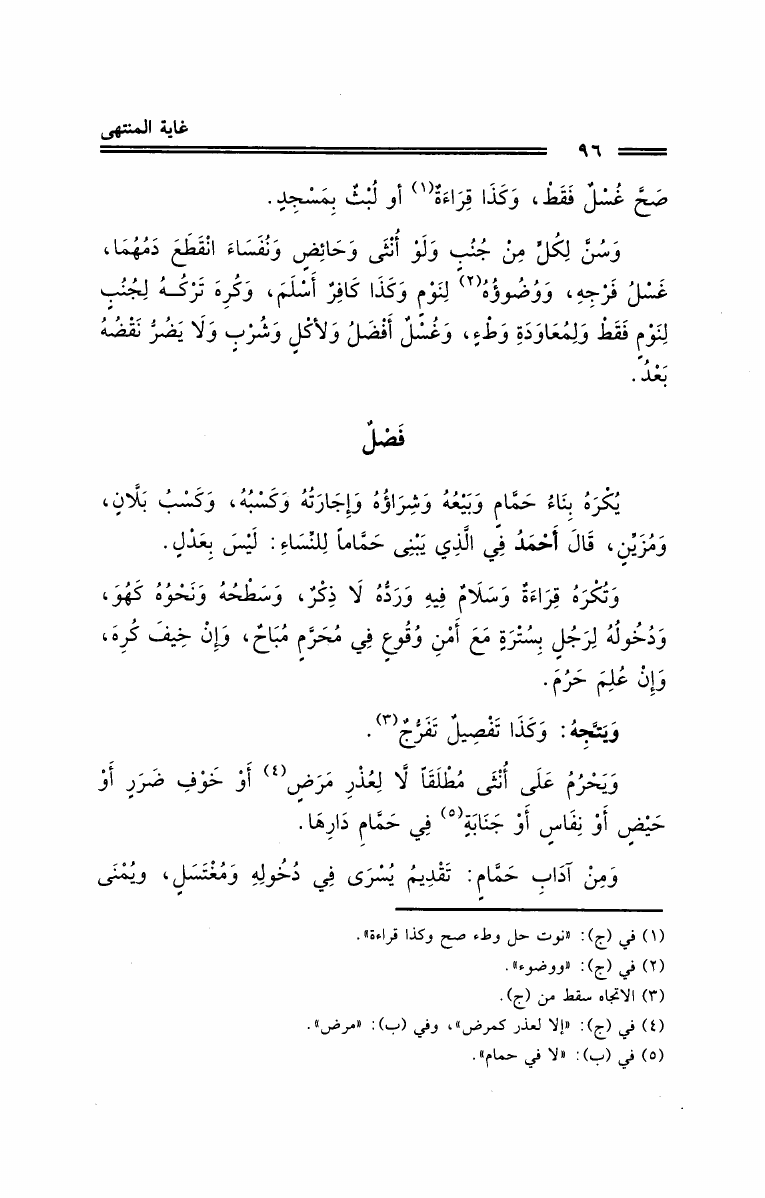 غاية المنتهى
٩٦
صَحَّ غُسْلٌ فَقَطْ، وَكَذَا قِرَاءَةٌ(١) أو لُبْثٌ بِمَسْجِدٍ.
وَسُنَّ لِكُلٍّ مِنْ جُنُبٍ وَلَوْ أُنْثَى وَحَائِضٍ وَنُفَسَاءَ انْقَطَعَ دَمُهُمَا،
غَسْلُ فَرْجِهِ، وَوُضُوؤُهُ(٢) لِنَوْمٍ وَكَذَا كَافِرٌ أَسْلَمَ، وَكُرِهَ تَرْكُـهُ لِجُنُبٍ
لِنَوْمٍ فَقَطْ وَلِمُعَاوَدَةِ وَطْءٍ، وَغُسْلٌ أَفْضَلُ وَلأَكْلٍ وَشُرْبٍ وَلَا يَضُرُّ نَقْضُهُ
بَعْدُ.
فَصْلٌ
يُكْرَهُ بِنَاءُ حَمَّامٍ وَبَيْعُهُ وَشِرَاؤُهُ وَإِجَارَتُهُ وَكَسْبُهُ، وَكَسْبُ بَلَّانٍ،
وَمُزَيِّنٍ، قَالَ أَحْمَدُ فِي الَّذِي يَبْنِى حَمَّاماً لِلنِّسَاءِ: لَيْسَ بِعَدْلٍ.
وَتُكْرَهُ قِرَاءَةٌ وَسَلَامٌ فِيهِ وَرَدُّهُ لَا ذِكْرٌ، وَسَطْحُهُ وَنَحْوُهُ كَهُوَ،
وَدُخُولُهُ لِرَجُلٍ بِسُتْرَةٍ مَعَ أَمْنِ وُقُوعٍ فِي مُحَرَّمٍ مُبَاحٌ، وَإِنْ خِيفَ كُرِهَ،
وَإِنْ عُلِمَ حَرُمَ.
وَيَتَّجِهُ: وَكَذَا تَفْصِيلٌ تَفَرُّجٌ(٣).
وَيَحْرُمُ عَلَى أُنْثَى مُطْلَقَاً لَّا لِعُذْرِ مَرَضٍ(٤) أَوْ خَوْفِ ضَرَرٍ أَوْ
حَيْضٍ أَوْ نِفَاسٍ أَوْ جَنَابَةٍ(٥) فِي حَمَّامِ دَارِهَا.
وَمِنْ آدَابِ حَمَّامٍ: تَقْدِيمُ يُسْرَى فِي دُخُولِهِ وَمُغْتَسَلٍ، ويُمْنَى
(١) في (ج): «نوت حل وطء صح وكذا قراءة».
(٢) في (ج): «ووضوء».
(٣) الاتجاه سقط من (ج).
(٤) في (ج): «إلا لعذر كمرض»، وفي (ب): «مرض».
(٥) في (ب): «لا في حمام».